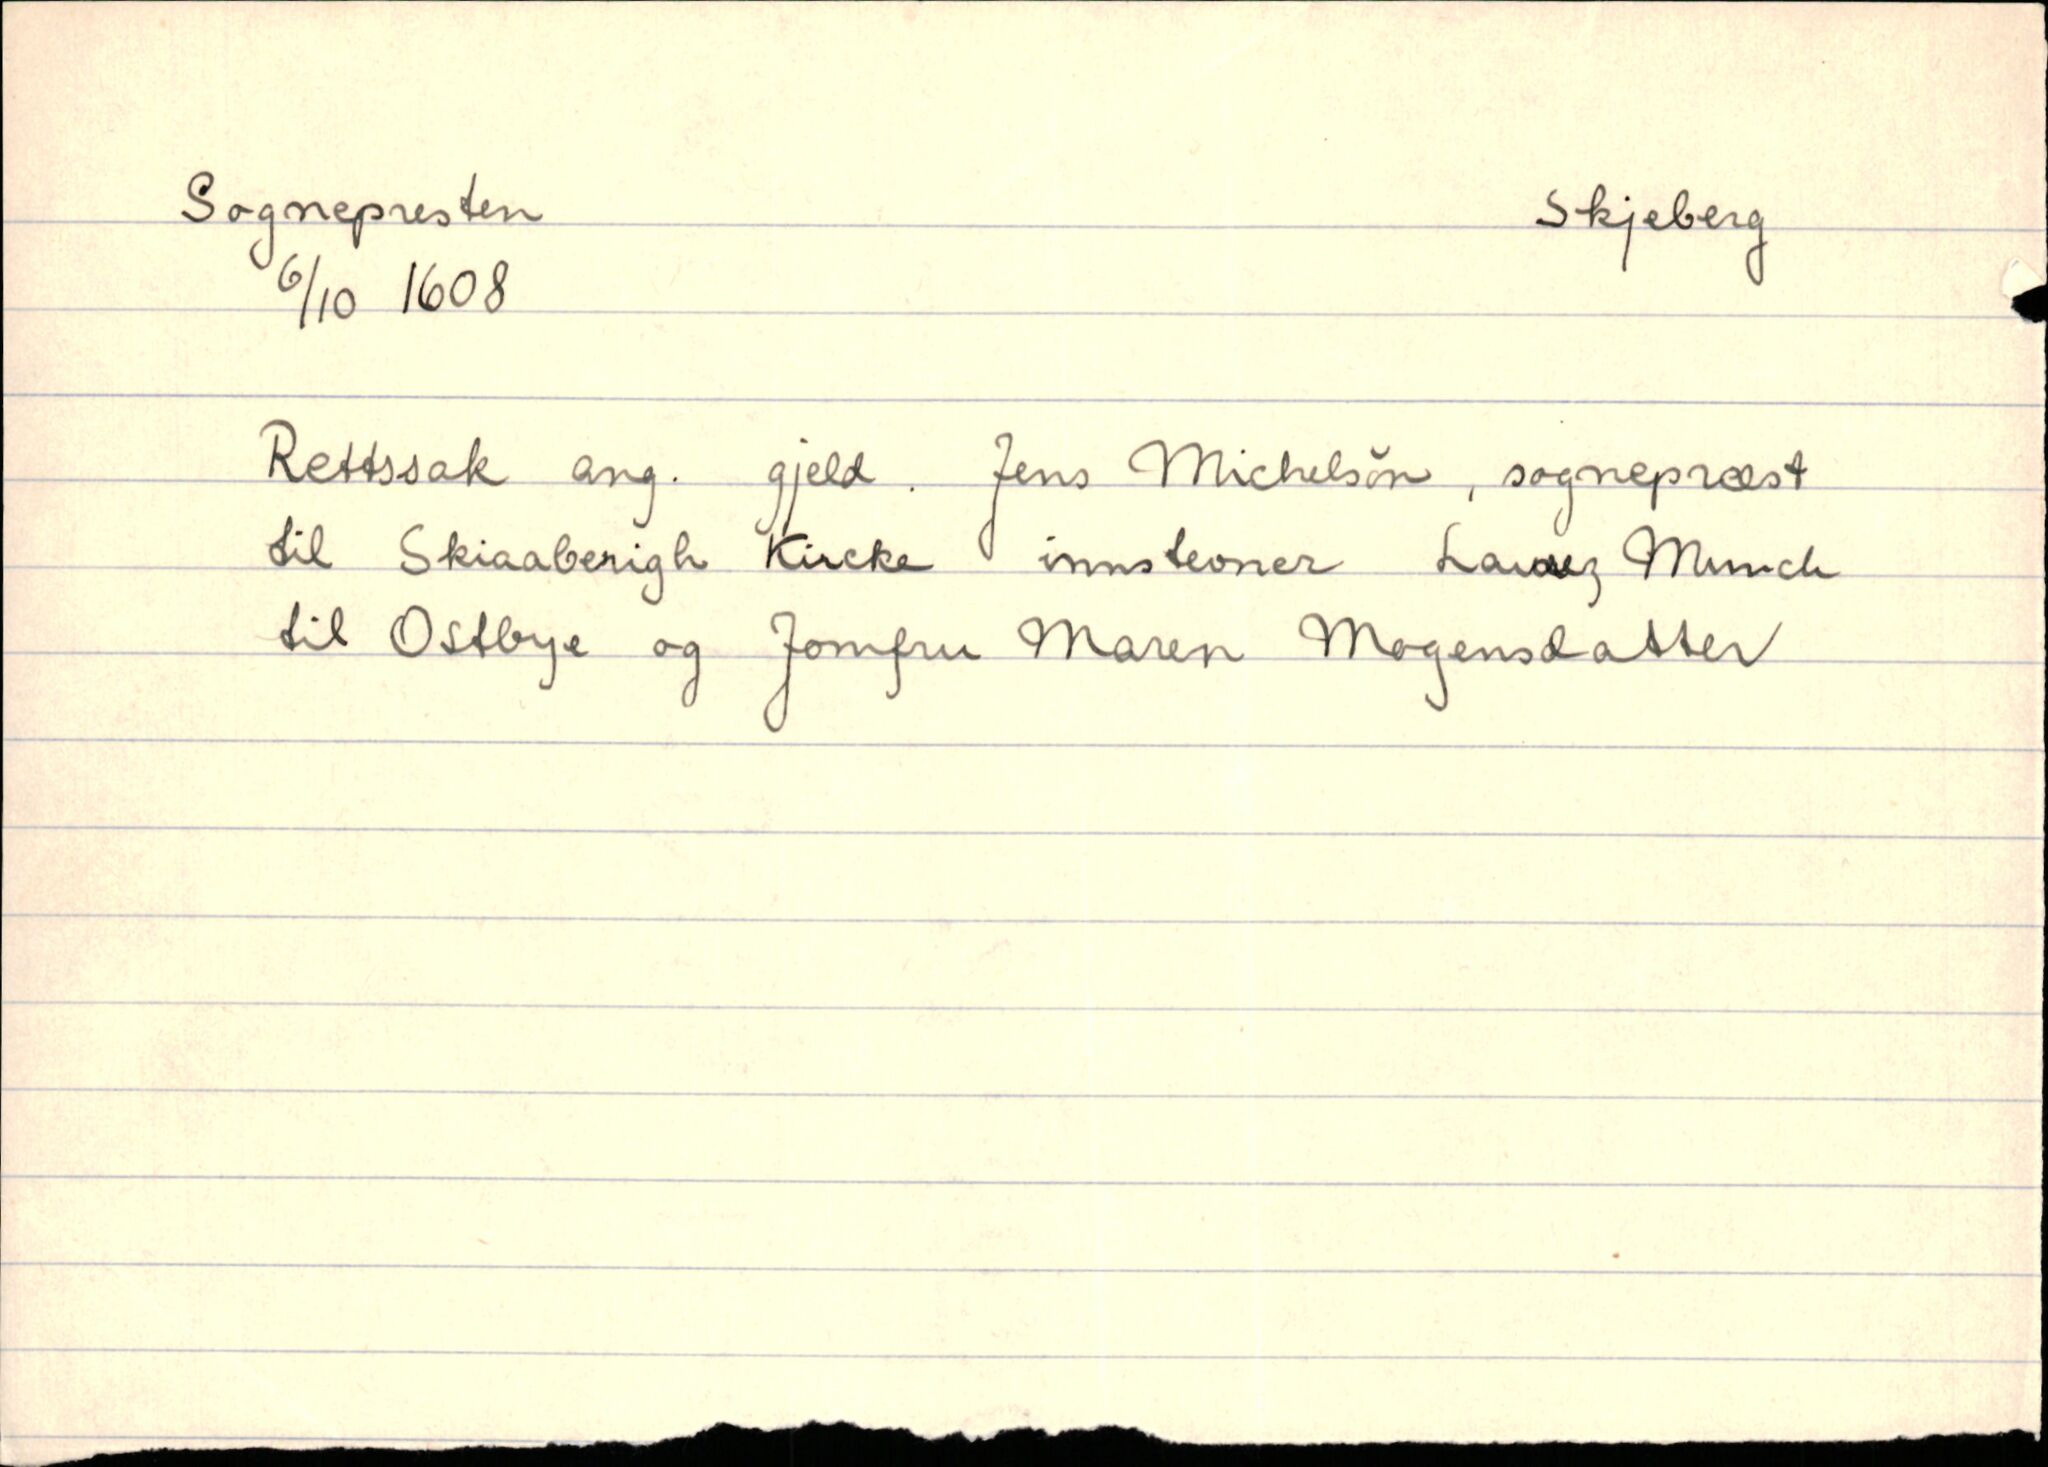 Sognepresten Skjeberg
6/10 1608
Rettssak ang. gjeld. Jens Michelsŏn, sognepræst
til Skiaaberigh Kircke innstevner Munch
til Ostbye og Jomfru Maren Mogensdatter